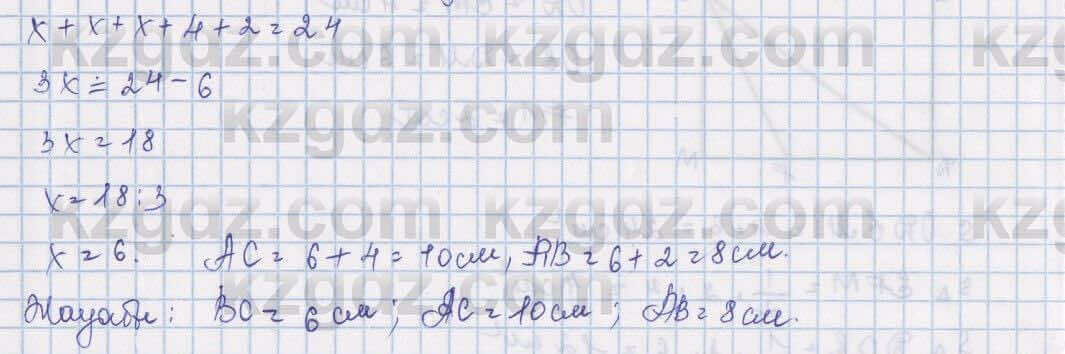 x + x + x + 4 + 2 = 24
3x = 24 - 6
3x = 18
x = 18 : 3
x = 6. AC = 6 + 4 = 10 см, AB = 6 + 2 = 8 см.
Жауабы: BC = 6 см; AC = 10 см; AB = 8 см.
kzgdz.com kzgdz.com
kzgdz.com
kzgdz.com kzgdz.com
kzgdz.com